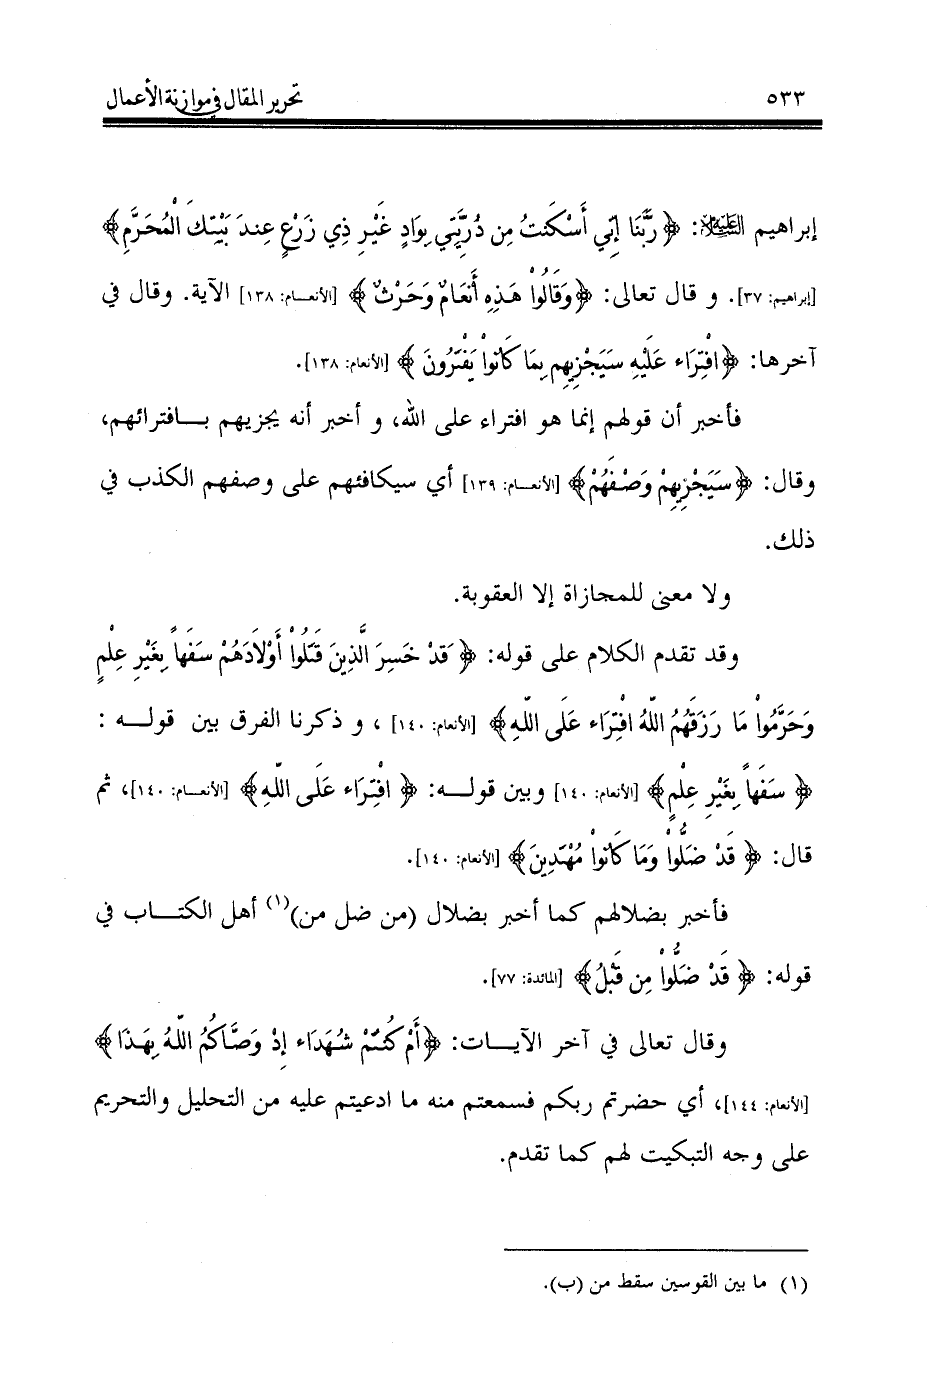 ٥٣٣ تحرير المقال في موازنة الأعمال
إبراهيم عليه السلام: ﴿رَّبَّنَا إِنِّي أَسْكَنتُ مِن ذُرِّيَّتِي بِوَادٍ غَيْرِ ذِي زَرْعٍ عِندَ بَيْتِكَ الْمُحَرَّمِ﴾
[إبراهيم: ٣٧]. و قال تعالى: ﴿وَقَالُواْ هَذِهِ أَنْعَامٌ وَحَرْثٌ﴾ [الأنعـام: ١٣٨] الآية. وقال في
آخرها: ﴿افْتِرَاء عَلَيْهِ سَيَجْزِيهِم بِمَا كَانُواْ يَفْتَرُونَ﴾ [الأنعام: ١٣٨].
فأخبر أن قولهم إنما هو افتراء على الله، و أخبر أنه يجزيهم بـــافترائهم،
وقال: ﴿سَيَجْزِيهِمْ وَصْفَهُمْ﴾ [الأنعـــام: ١٣٩] أي سيكافئهم على وصفهم الكذب في
ذلك.
ولا معنى للمجازاة إلا العقوبة.
وقد تقدم الكلام على قوله: ﴿قَدْ خَسِرَ الَّذِينَ قَتَلُواْ أَوْلاَدَهُمْ سَفَهاً بِغَيْرِ عِلْمٍ
وَحَرَّمُواْ مَا رَزَقَهُمُ اللّهُ افْتِرَاء عَلَى اللّهِ﴾ [الأنعام: ١٤٠] ، و ذكرنا الفرق بين قولـــه :
﴿سَفَهاً بِغَيْرِ عِلْمٍ﴾ [الأنعام: ١٤٠] وبين قولـــه: ﴿افْتِرَاء عَلَى اللّهِ﴾ [الأنعـــام: ١٤٠]، ثم
قال: ﴿قَدْ ضَلُّواْ وَمَا كَانُواْ مُهْتَدِينَ﴾ [الأنعام: ١٤٠].
فأخبر بضلالهم كما أخبر بضلال (من ضل من)(١) أهل الكتـــاب في
قوله: ﴿قَدْ ضَلُّواْ مِن قَبْلُ﴾ [المائدة: ٧٧].
وقال تعالى في آخر الآيـــات: ﴿أَمْ كُنتُمْ شُهَدَاء إِذْ وَصَّاكُمُ اللّهُ بِهَذَا﴾
[الأنعام: ١٤٤]، أي حضرتم ربكم فسمعتم منه ما ادعيتم عليه من التحليل والتحريم
على وجه التبكيت لهم كما تقدم.
(١) ما بين القوسين سقط من (ب).